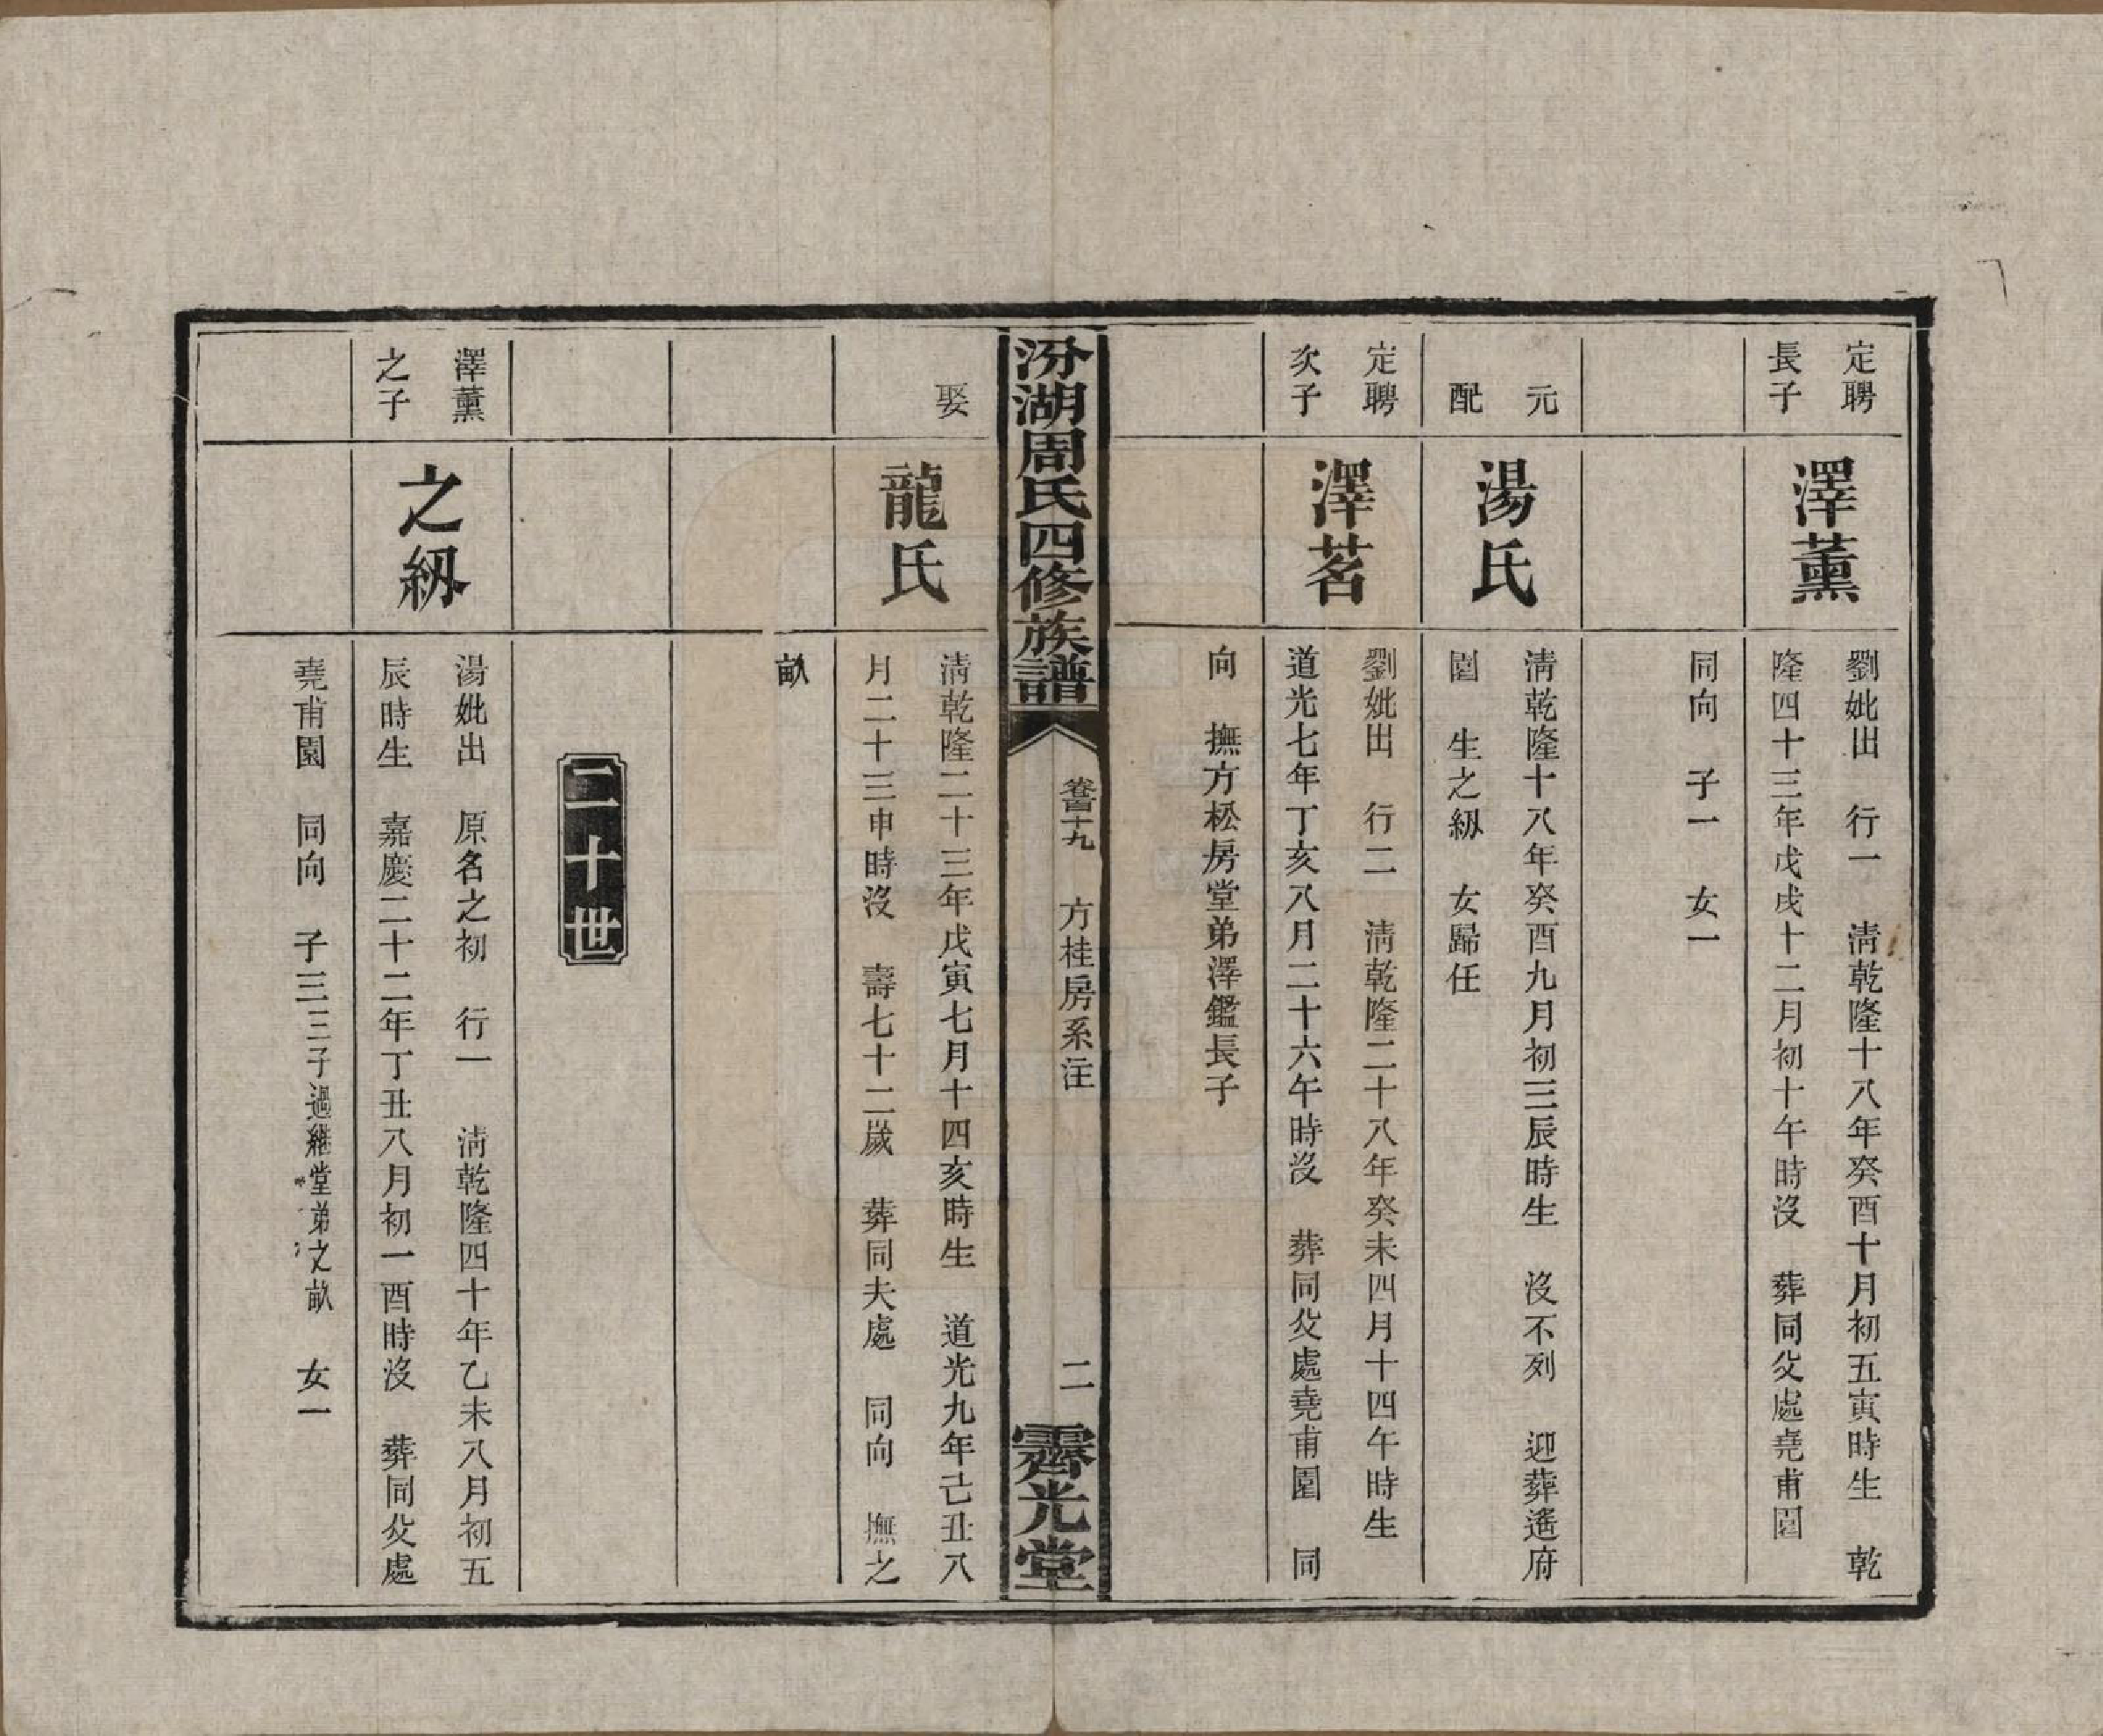 定聘
長子
澤薰
劉妣出 行一 淸乾隆十八年癸酉十月初五寅時生 乾
隆四十三年戊戌十二月初十午時沒 葬同父處堯甫園
同向 子一 女一
元
配
湯氏
淸乾隆十八年癸酉九月初三辰時生 沒不列 迎葬遙府
園 生之紉 女歸任
定聘
次子
澤茗
劉妣出 行二 淸乾隆二十八年癸未四月十四午時生
道光七年丁亥八月二十六午時沒 葬同父處堯甫園 同
向 撫方松房堂弟澤鑑長子
汾湖周氏四修族譜
卷百十九 方桂房系注
二
霽光堂
娶
龍氏
淸乾隆二十三年戊寅七月十四亥時生 道光九年己丑八
月二十三申時沒 壽七十二歲 葬同夫處 同向 撫之
畝
二十世
澤薰
之子
之紉
湯妣出 原名之初 行一 淸乾隆四十年乙未八月初五
辰時生 嘉慶二十二年丁丑八月初一酉時沒 葬同父處
堯甫園 同向 子三三子過繼堂弟之畝 女一